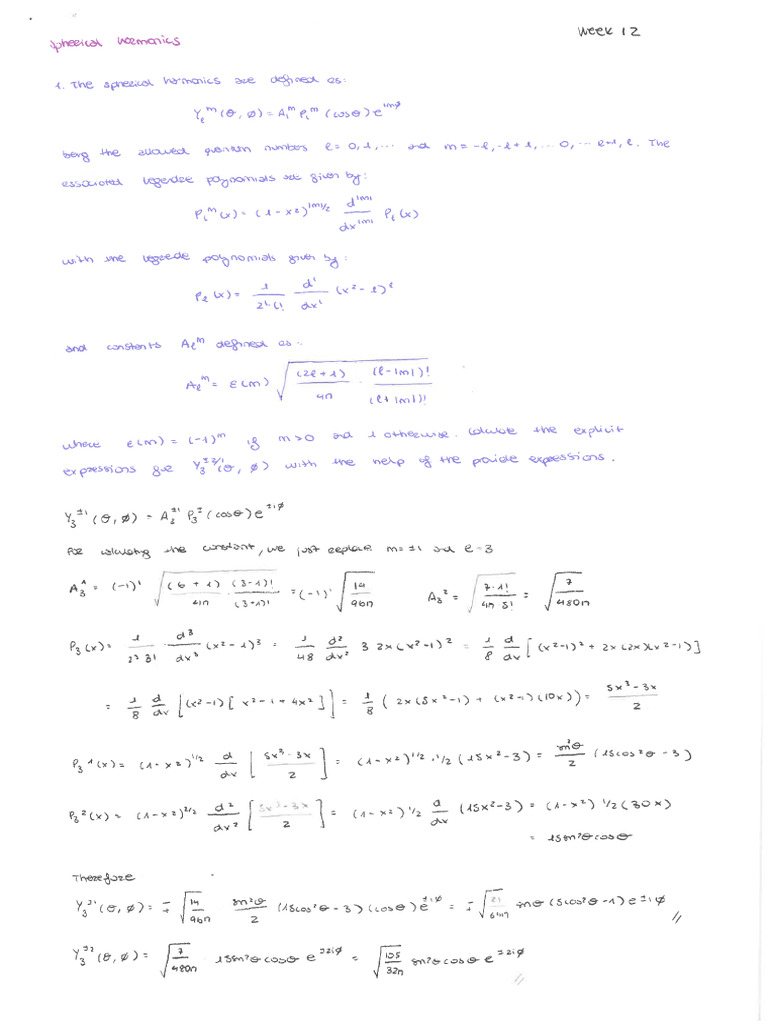 Week 12
spherical harmonics
1. The spherical harmonics are defined as:
Yₗᵐ(θ, ϕ) = Aₗᵐ Pₗᵐ (cosθ) eⁱᵐᶲ
being the allowed quantum numbers ℓ = 0, 1, ... and m = -ℓ, -ℓ+1, ... 0, ... ℓ-1, ℓ. The
associated legendre polynomials are given by:
Pₗᵐ(x) = (1-x²)^(|m|/2) d^|m|/dx^|m| Pₗ(x)
with the legendre polynomials given by:
Pₗ(x) = 1/(2ˡ·l!) dˡ/dxˡ (x²-1)ˡ
and constants Aₗᵐ defined as:
Aₗᵐ = ε(m) √((2ℓ+1)/4π · (ℓ-|m|)!/(ℓ+|m|)!)
where ε(m) = (-1)ᵐ if m>0 and 1 otherwise. Calculate the explicit
expressions for Y₃^(±2/1)(θ, ϕ) with the help of the expressions.
Y₃^±1 (θ, ϕ) = A₃^±1 P₃^± (cosθ) e^±iϕ
For calculating the constant, we just replace m=±1 and ℓ=3
A₃¹ = (-1)¹ √((6+1)/4π (3-1)!/(3+1)!) = (-1)¹ √(14/96π) A₃² = √(7·1!/4π 5!) = √(7/480π)
P₃(x) = 1/(2³3!) · d³/dx³ (x²-1)³ = 1/48 d²/dx² 3 2x(x²-1)² = 1/8 d/dx [(x²-1)² + 2x(2x)(x²-1)]
= 1/8 d/dx [(x²-1)[x²-1+4x²]] = 1/8 (2x(5x²-1) + (x²-1)(10x)) = (5x³-3x)/2
P₃¹(x) = (1-x²)^1/2 d/dx [(5x³-3x)/2] = (1-x²)^1/2 · 1/2 (15x²-3) = sin²θ/2 (15cos²θ-3)
P₃²(x) = (1-x²)^2/2 d²/dx² [(5x³-3x)/2] = (1-x²) 1/2 d/dx (15x²-3) = (1-x²) 1/2 (30x)
= 15sin²θcosθ
Therefore
Y₃^±1 (θ, ϕ) = ∓√(14/96π) sin²θ/2 (15cos²θ-3) (cosθ) e^±iϕ = ∓√(21/64π) sinθ (5cos²θ-1) e^±iϕ //
Y₃^±2 (θ, ϕ) = √(7/480π) · 15sin²θcosθ e^±2iϕ = √(105/32π) sin²θcosθ e^±2iϕ //